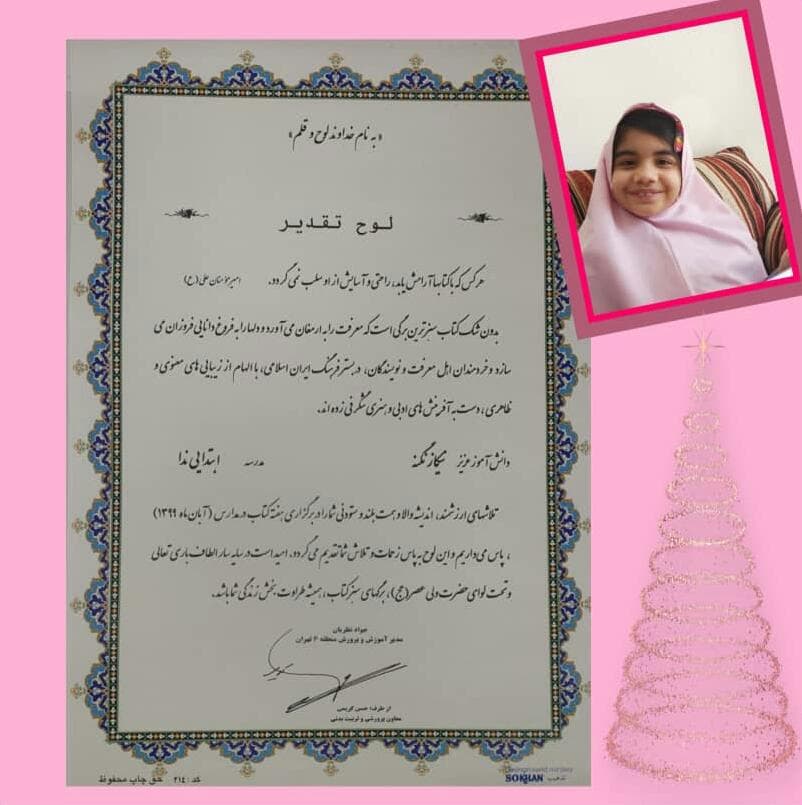 «به نام خداوند لوح و قلم»
لوح تقدیر
هرکس که با کتابها آرامش یابد، راحتی و آسایش از او سلب نمی گردد. امیرمؤمنان علی (ع)
بدون شک کتاب سبزترین برگی است که معرفت را به ارمغان می آورد و دلها را به فروغ دانایی فروزان می
سازد و خردمندان اهل معرفت و نویسندگان، در بستر فرهنگ ایران اسلامی، با الهام از زیبایی های معنوی و
ظاهری، دست به آفرینش های ادبی و هنری شگرفی زده اند.
دانش آموز عزیز نیکاز نگنه مدرسه ابتدایی ندا
تلاشهای ارزشمند، اندیشه والا و همت بلند و ستودنی شما را در برگزاری هفته کتاب در مدارس (آبان ماه ۱۳۹۹)
، پاس می داریم و این لوح به پاس زحمات و تلاش شما تقدیم می گردد. امید است در سایه سار الطاف باری تعالی
و تحت لوای حضرت ولی عصر (عج)، برگهای سبز کتاب، همیشه طراوت بخش زندگی شما باشد.
جواد نظریان
مدیر آموزش و پرورش منطقه ۶ تهران
از طرف: حسن کریمی
معاون پرورشی و تربیت بدنی
کد: ۲۱٤ حق چاپ محفوظ
SOKHAN تذهیب